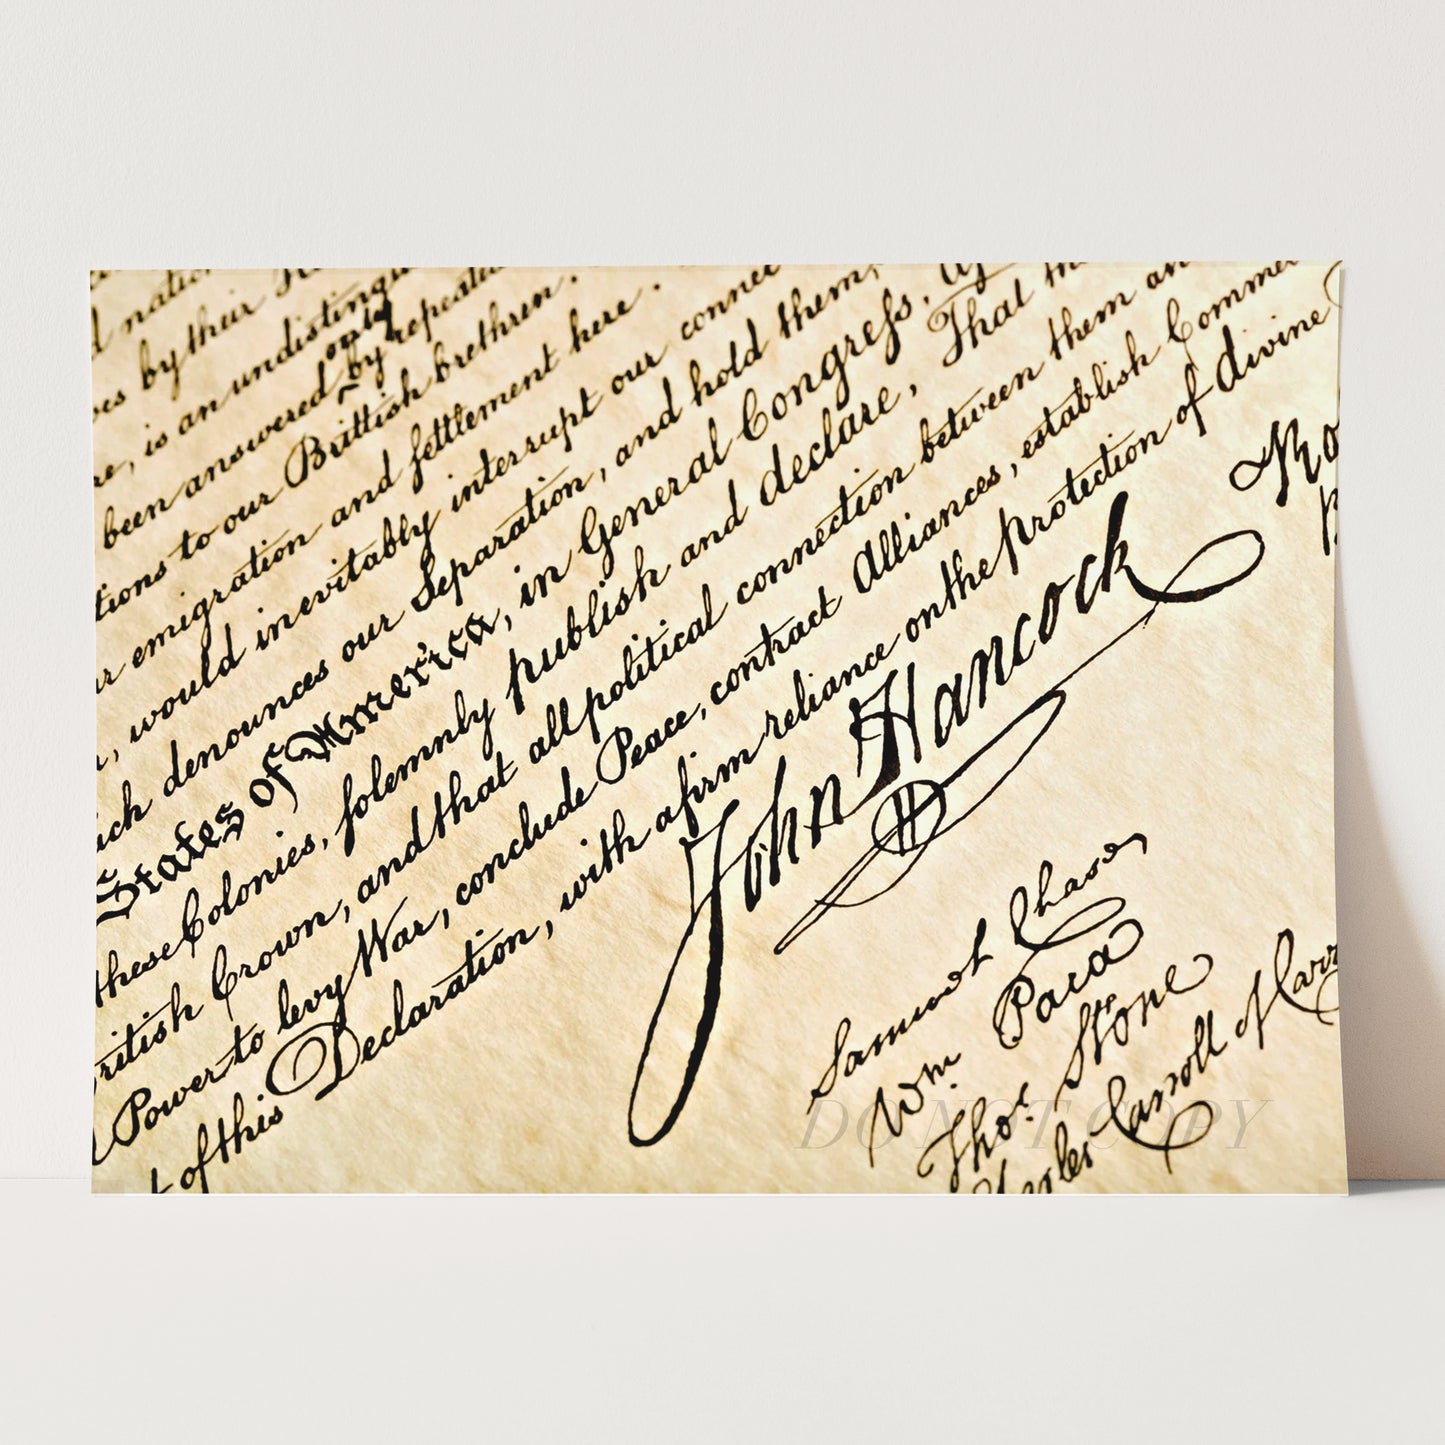 d natio
es by their
re, is an undistingu
only
been answered by repeated
tions to our Brittish brethren.
r emigration and settlement here.
n, would inevitably interrupt our connec
ich denounces our Separation, and hold them,
States of America, in General Congress,
these Colonies, solemnly publish and declare, That
ritish Crown, and that all political connection between them an
Power to levy War, conclude Peace, contract Alliances, establish Commer
t of this Declaration, with a firm reliance on the protection of divine
John Hancock
Ro
Samuel Chase,
Wm. Paca
Thos. Stone
Charles Carroll of Carr
DO NOT COPY